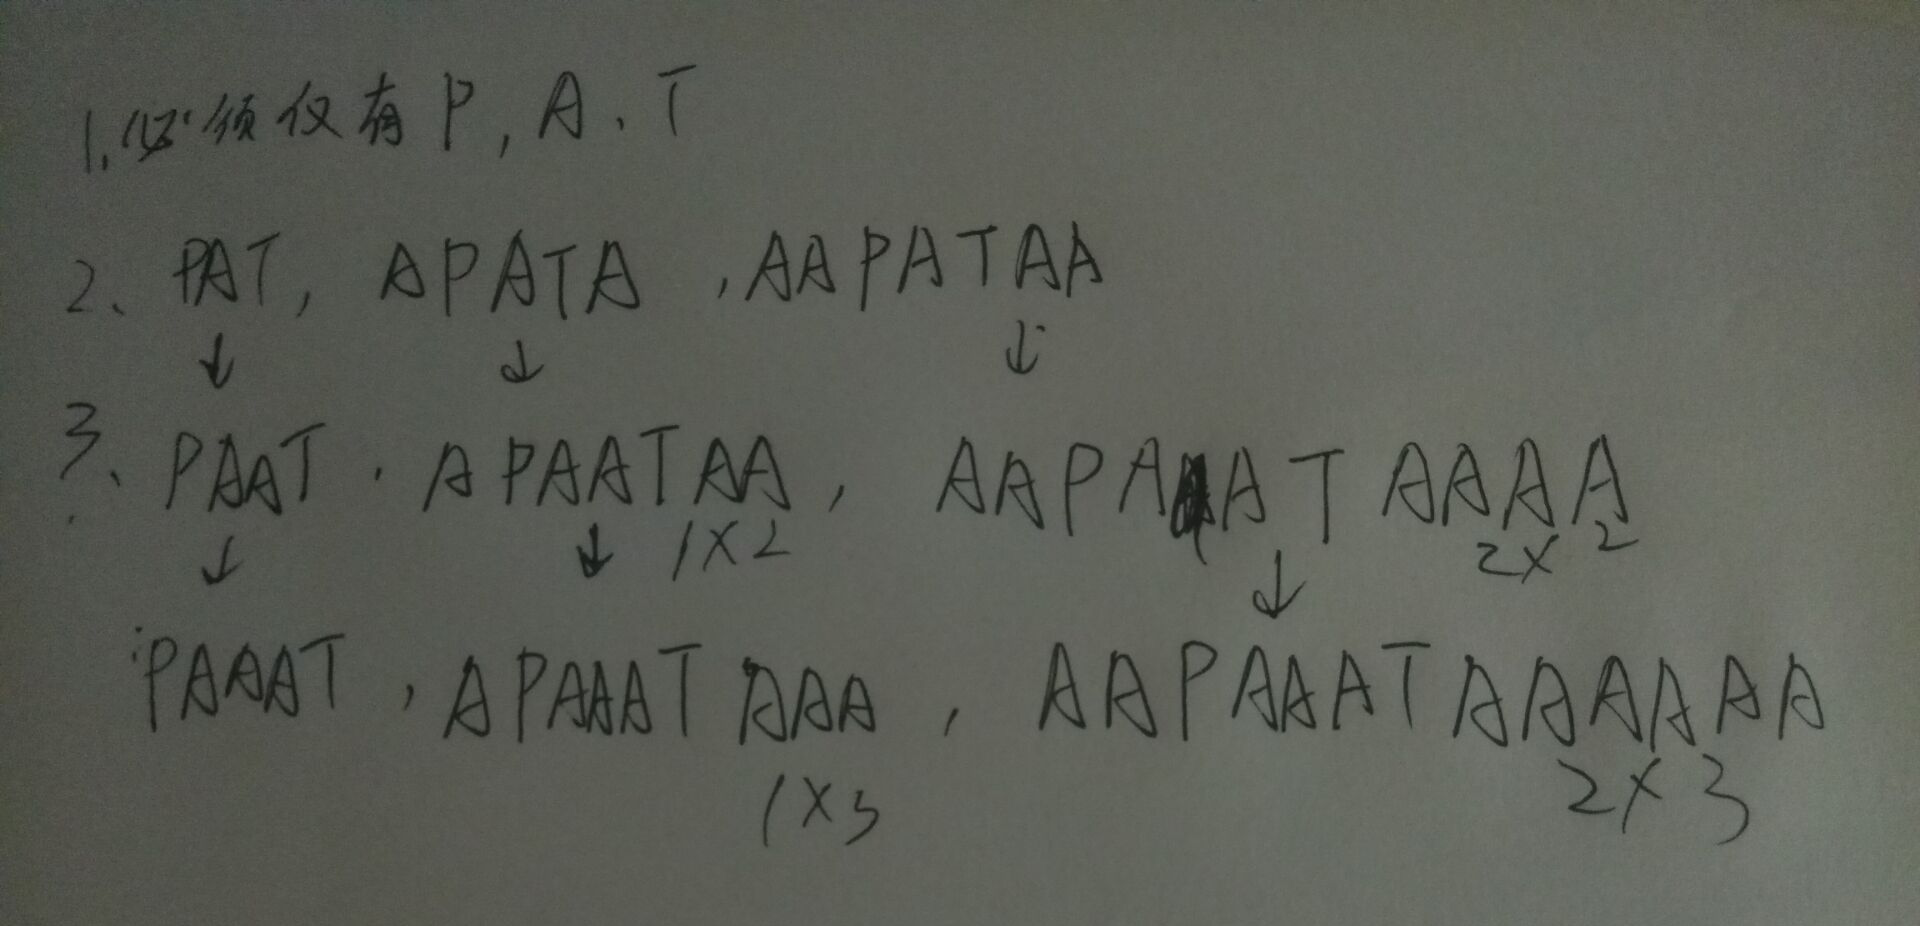 1.必须仅有P,A、T
2、PAT, APATA ,AAPATAA
↓ ↓ ↓
3、PAAT . APAATAA, AAPAATAAAA
↓ ↓ 1×2 ↓ 2×2
PAAAT , APAAATAAA , AAPAAATAAAAAA
1×3 2×3